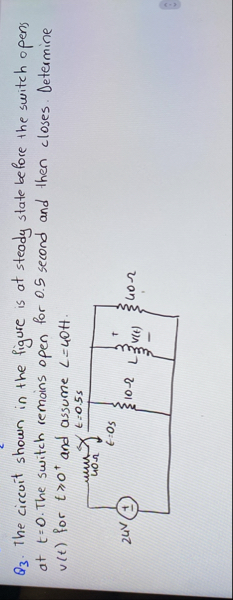 Q3. The circuit shown in the figure is at steady state before the switch opens
at t=0. The switch remains open for 0.5 second and then closes. Determine
v(t) for t≥0⁺ and assume L=40H.
t=0.5s
40Ω
t=0s
24V
+
-
10Ω
L
+
v(t)
-
40Ω